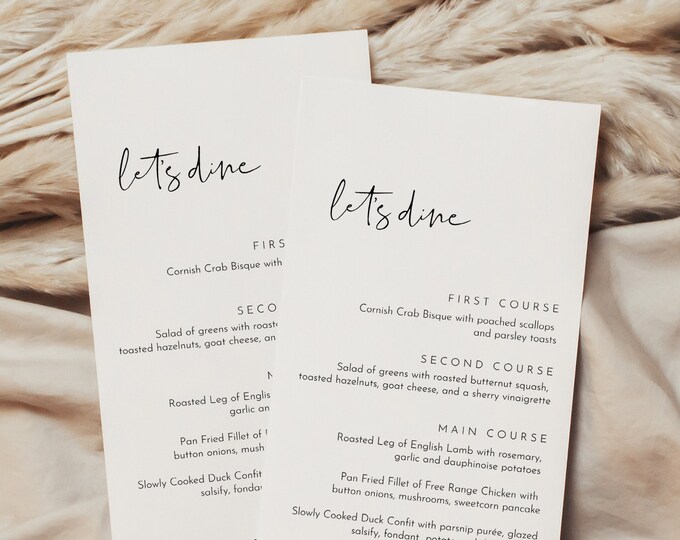 let's dine
FIRS
Cornish Crab Bisque with
SECO
Salad of greens with roaste
toasted hazelnuts, goat cheese, an
Roasted Leg of English
garlic an
Pan Fried Fillet of
button onions, mush
Slowly Cooked Duck Confit
salsify, fondan
let's dine
FIRST COURSE
Cornish Crab Bisque with poached scallops
and parsley toasts
SECOND COURSE
Salad of greens with roasted butternut squash,
toasted hazelnuts, goat cheese, and a sherry vinaigrette
MAIN COURSE
Roasted Leg of English Lamb with rosemary,
garlic and dauphinoise potatoes
Pan Fried Fillet of Free Range Chicken with
button onions, mushrooms, sweetcorn pancake
Slowly Cooked Duck Confit with parsnip purée, glazed
salsify, fondant